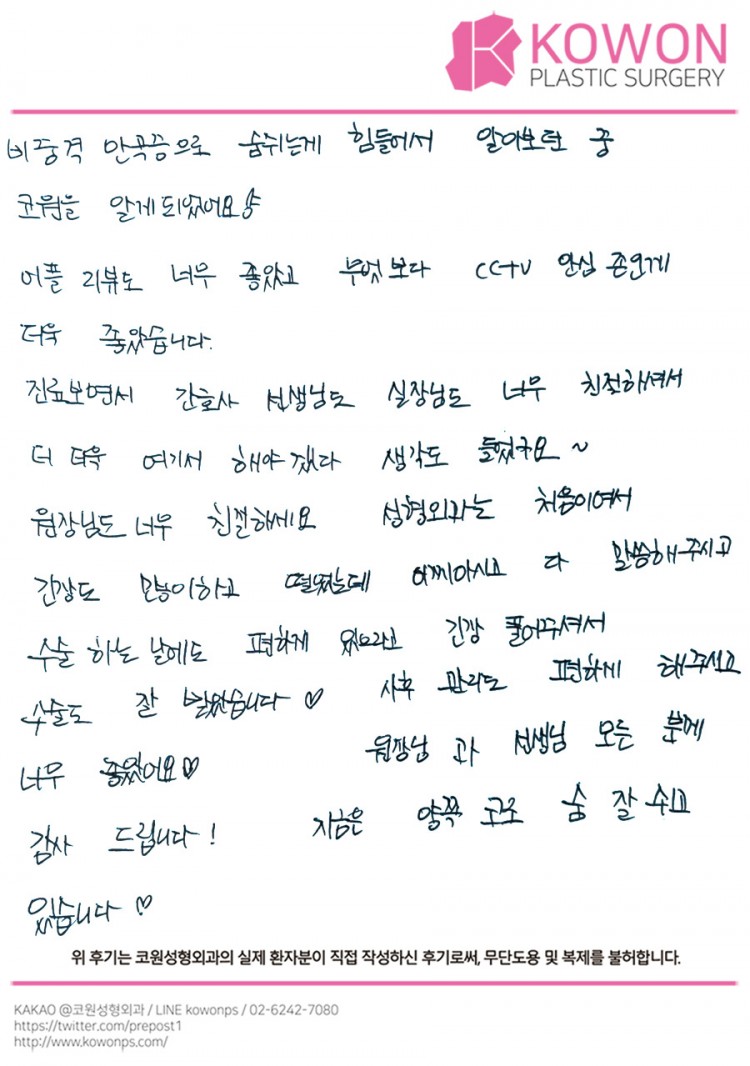 KOWON
PLASTIC SURGERY
비중격 만곡증으로 숨쉬는게 힘들어서 알아보던 중
코원을 알게되었어요
어플 리뷰도 너무 좋았고 무엇보다 CCTV 안심 존인게
더욱 좋았습니다.
진료보면서 간호사 선생님도 실장님도 너무 친절해셔서
더 더욱 여기서 해야겠다 생각도 들었구요~
원장님도 너무 친절하세요 성형외과는 처음이여서
긴장도 많이하고 떨렸는데 어찌아시고 다 말씀해주시고
수술 하는 날에도 편하게 있으라고 긴장 풀어주셔서
수술도 잘 받았습니다♡ 사후 관리도 편하게 해주시고
너무 좋았어요♡ 원장님 과 선생님 모든 분께
감사 드립니다! 지금은 양쪽 코로 숨 잘 쉬고
있습니다♡
위 후기는 코원성형외과의 실제 환자분이 직접 작성하신 후기로써, 무단도용 및 복제를 불허합니다.
KAKAO @코원성형외과 / LINE kowonps / 02-6242-7080
https://twitter.com/prepost1
http://www.kowonps.com/